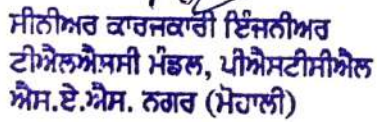 ਸੀਨੀਅਰ ਕਾਰਜਕਾਰੀ ਇੰਜਨੀਅਰ
ਟੀਐਲਐਸਸੀ ਮੰਡਲ, ਪੀਐਸਟੀਸੀਐਲ
ਐਸ.ਏ.ਐਸ. ਨਗਰ (ਮੋਹਾਲੀ)